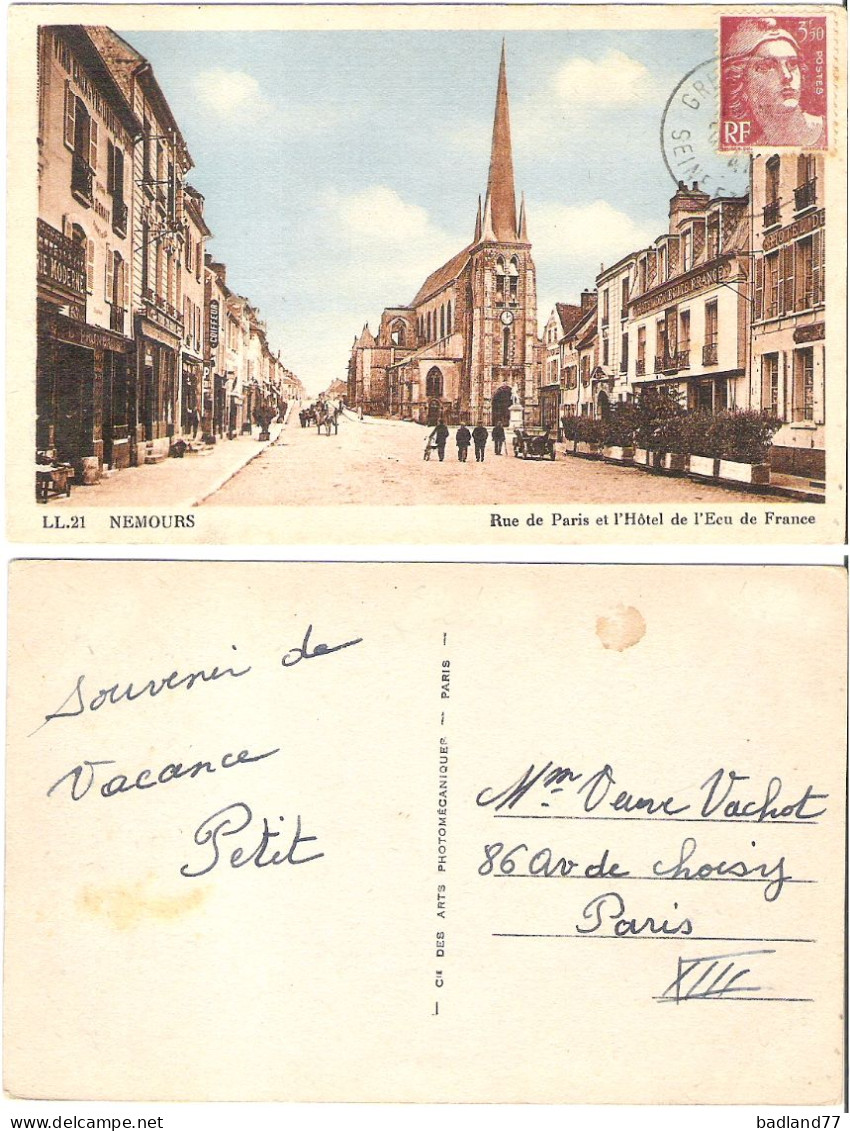 3F50
POSTES
RF
GRE
SEINE
COIFFEUR
LL.21 NEMOURS
Rue de Paris et l'Hôtel de l'Ecu de France
Souvenir de
Vacance
Petit
CIE DES ARTS PHOTOMÉCANIQUES — PARIS
Mme Veuve Vachot
86 Av de Choisy
Paris
XIII
badland77